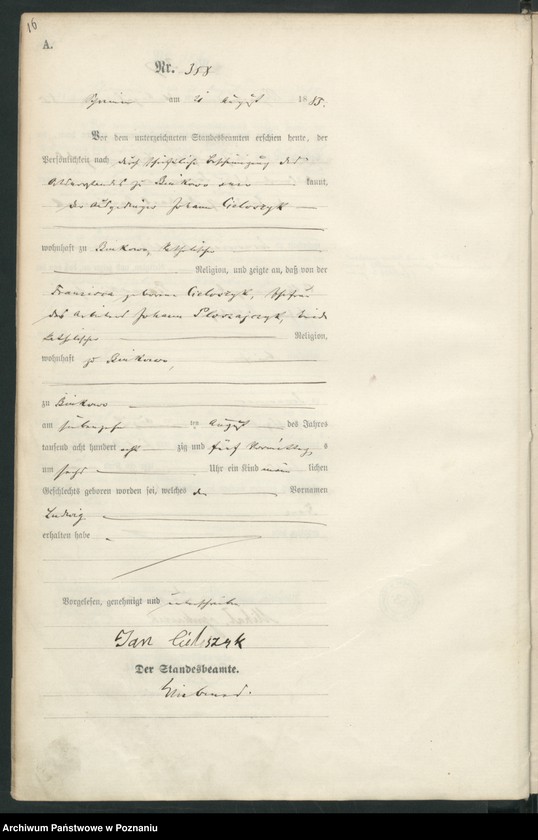 16
A.
Nr. 358
am 21 August 1885.
Vor dem unterzeichneten Standesbeamten erschien heute, der
Persönlichkeit nach durch schriftliche Bescheinigung des
zu Binkowo kannt,
der Johann Cieloszyk
wohnhaft zu Binkowo, katholischer
Religion, und zeigte an, daß von der
Franziska geborene Cieloszyk, Ehefrau
des Arbeiters Johann beide
katholischer Religion,
wohnhaft zu Binkowo,
zu Binkowo
am ten August des Jahres
tausend acht hundert acht zig und fünf Vormittags
um sechs Uhr ein Kind männ lichen
Geschlechts geboren worden sei, welches den Vornamen
Ludwig
erhalten habe
Vorgelesen, genehmigt und unterschrieben
Jan
Der Standesbeamte.
Archiwum Państwowe w Poznaniu